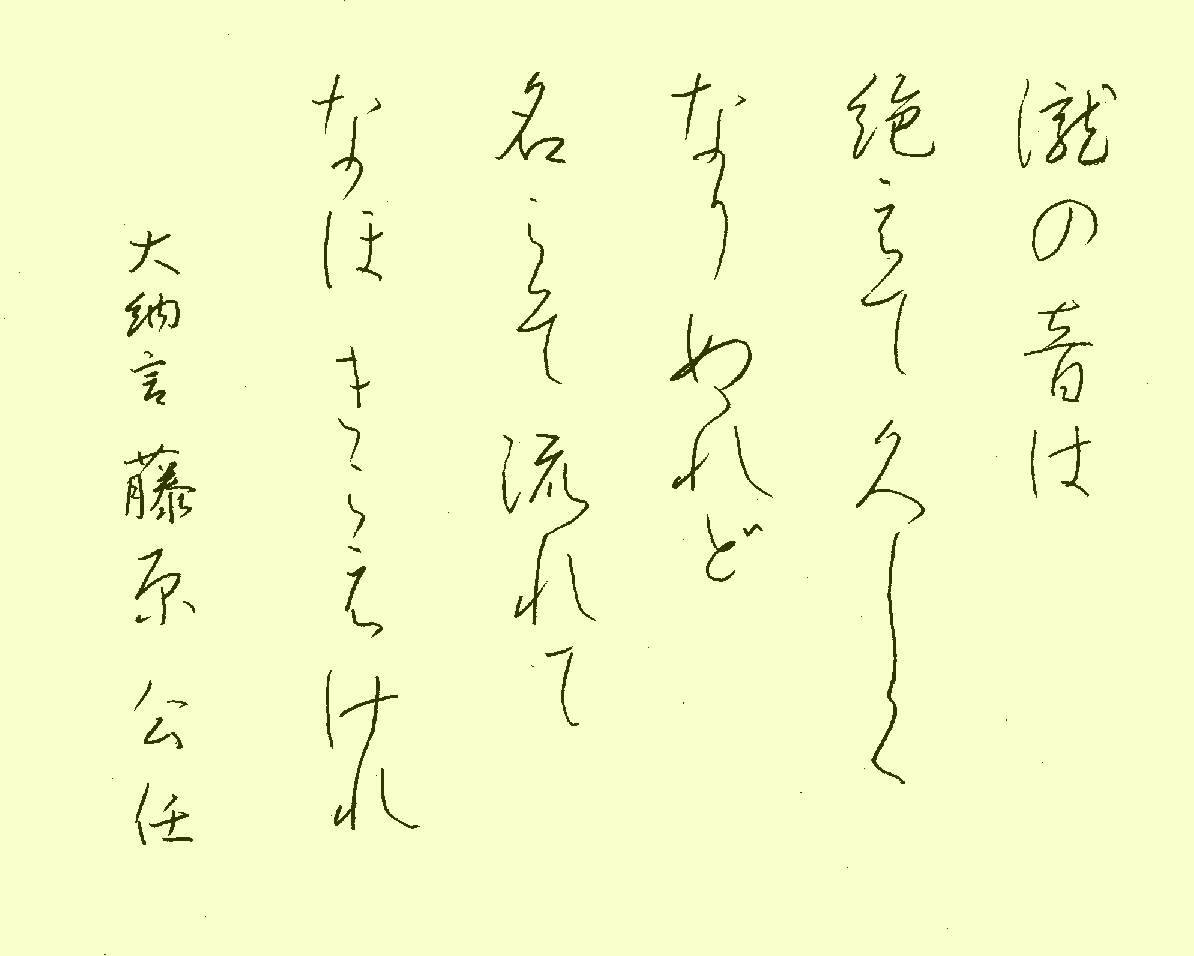 瀧の音は
絶えて久しく
なりぬれど
名こそ流れて
なほきこえけれ
大納言藤原公任